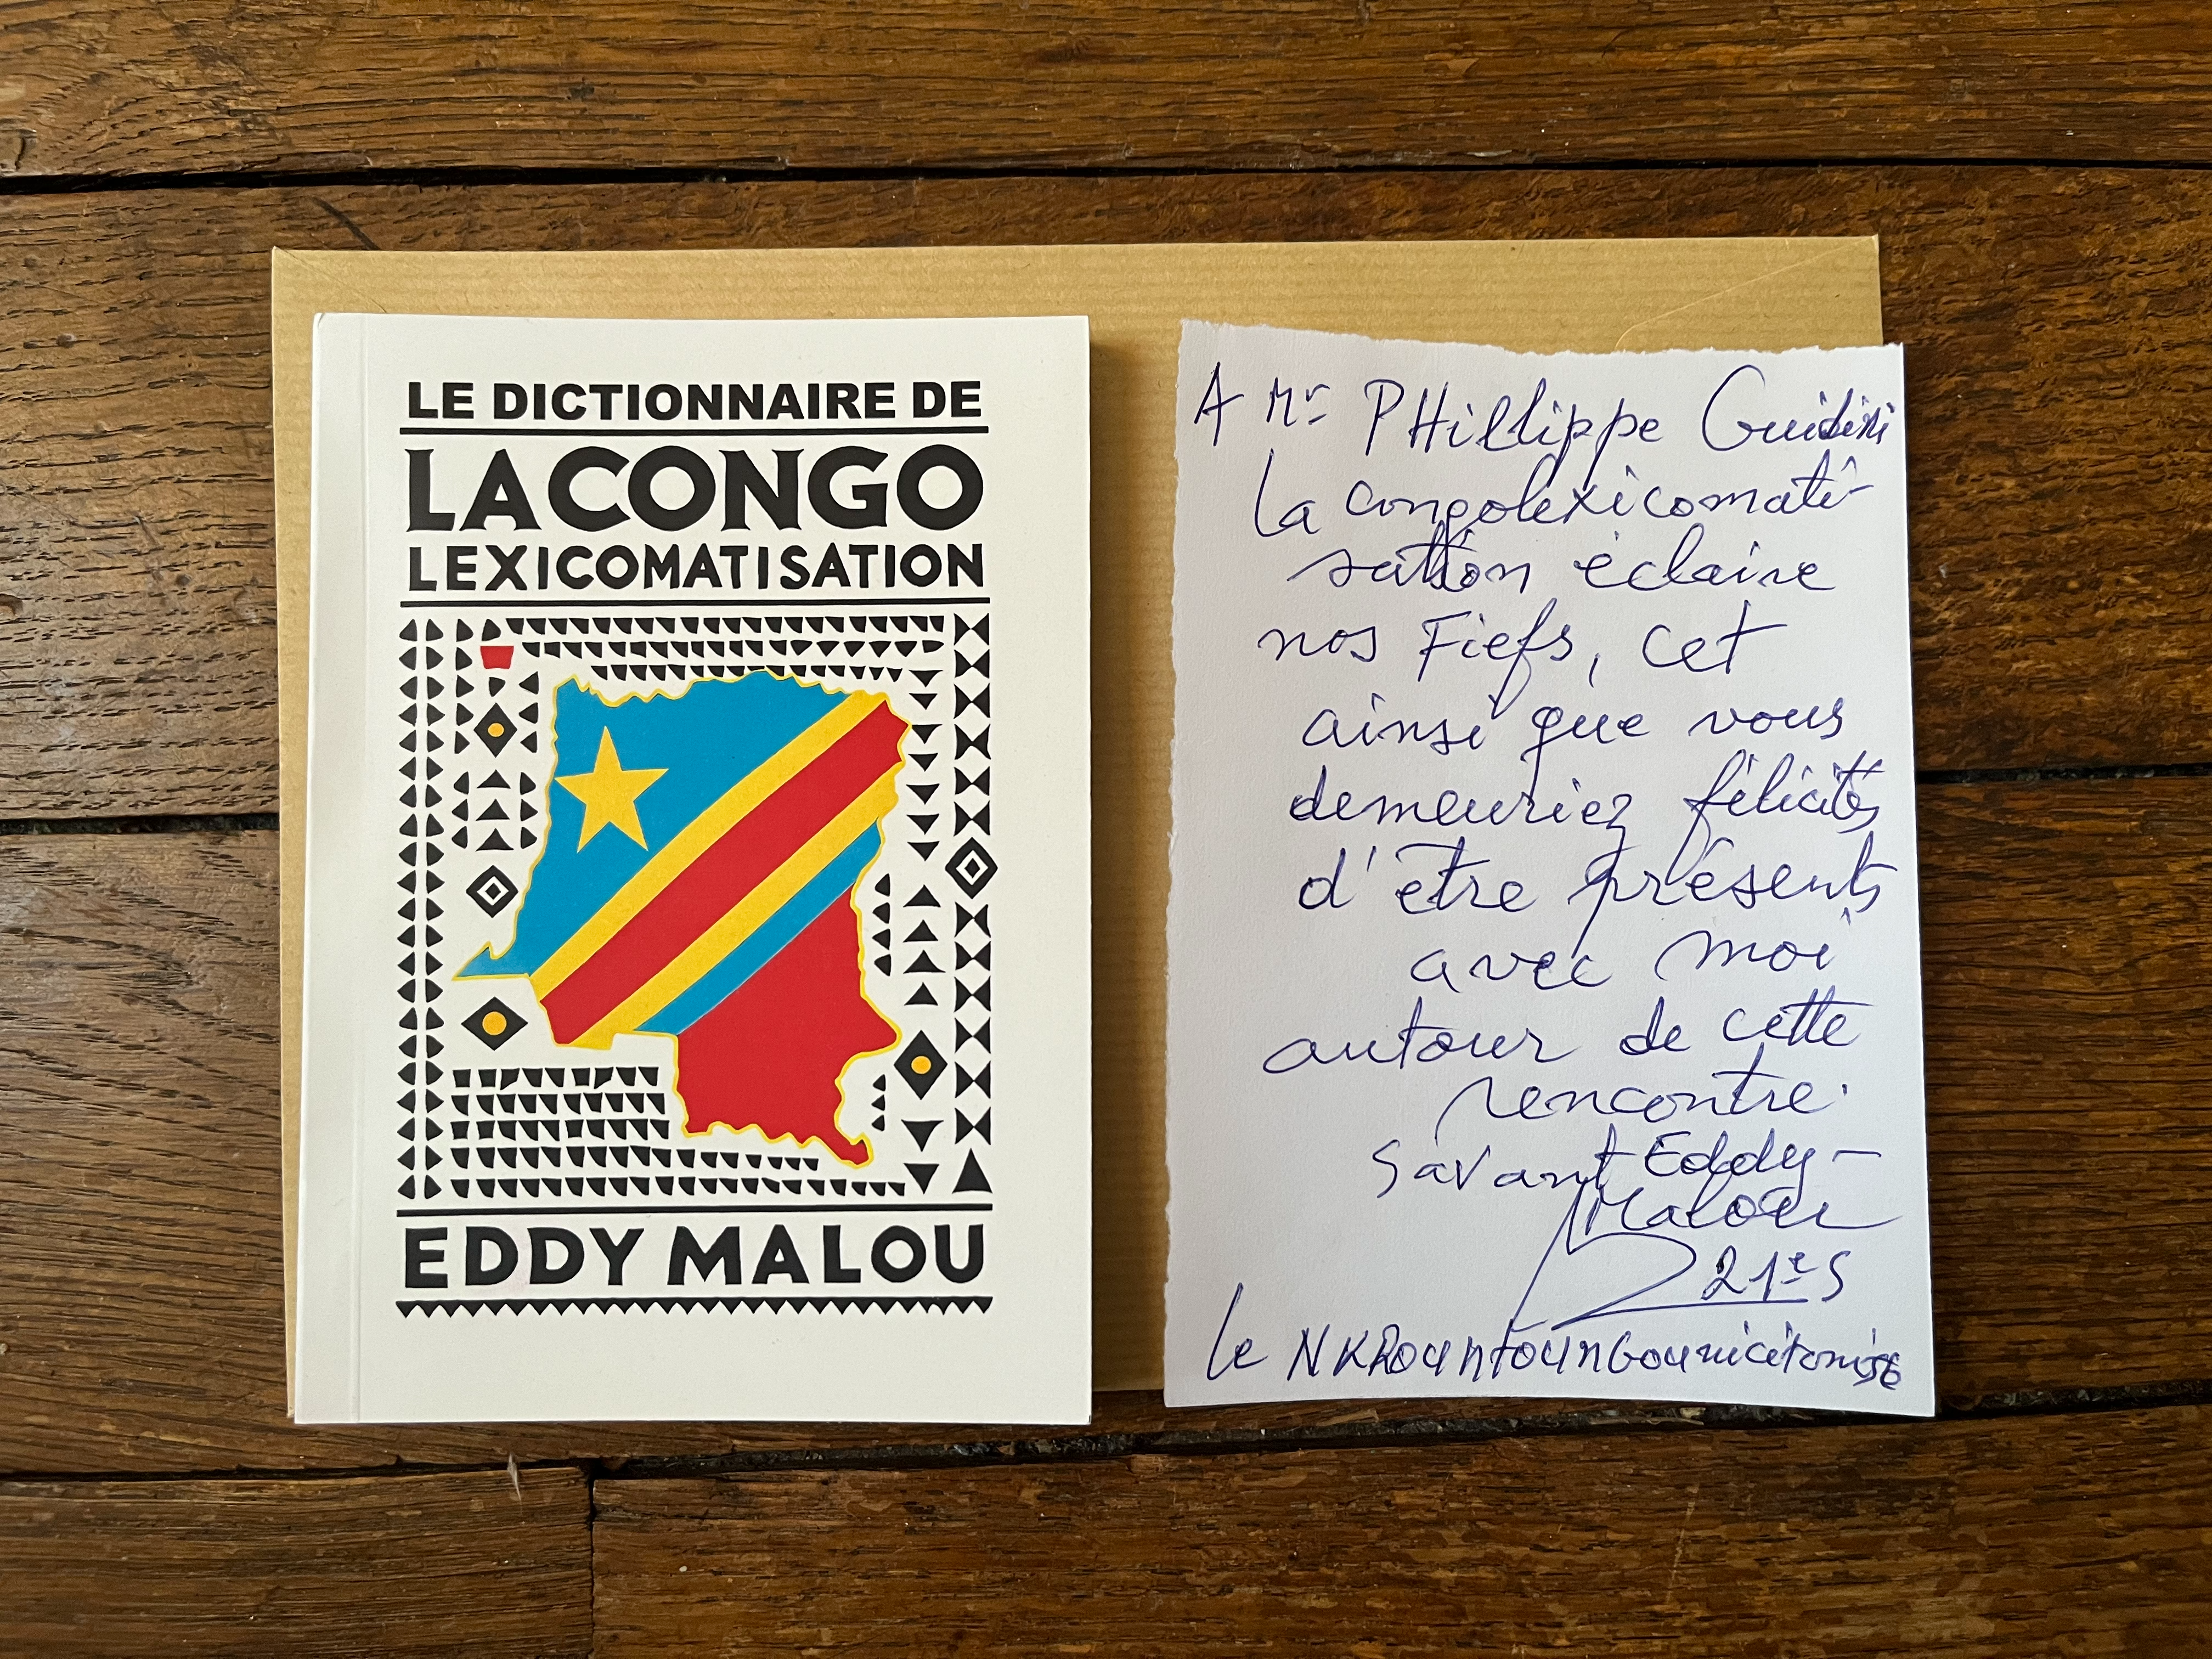 LE DICTIONNAIRE DE
LA CONGO
LEXICOMATISATION
EDDY MALOU
A Mr PHillippe
la congolexicomati-
sation éclaire
nos Fiefs, cet
ainsi que vous
demeuriez félicités
d'être présents
avec moi
autour de cette
rencontre.
Savant Eddy-
Malou
21e S
le